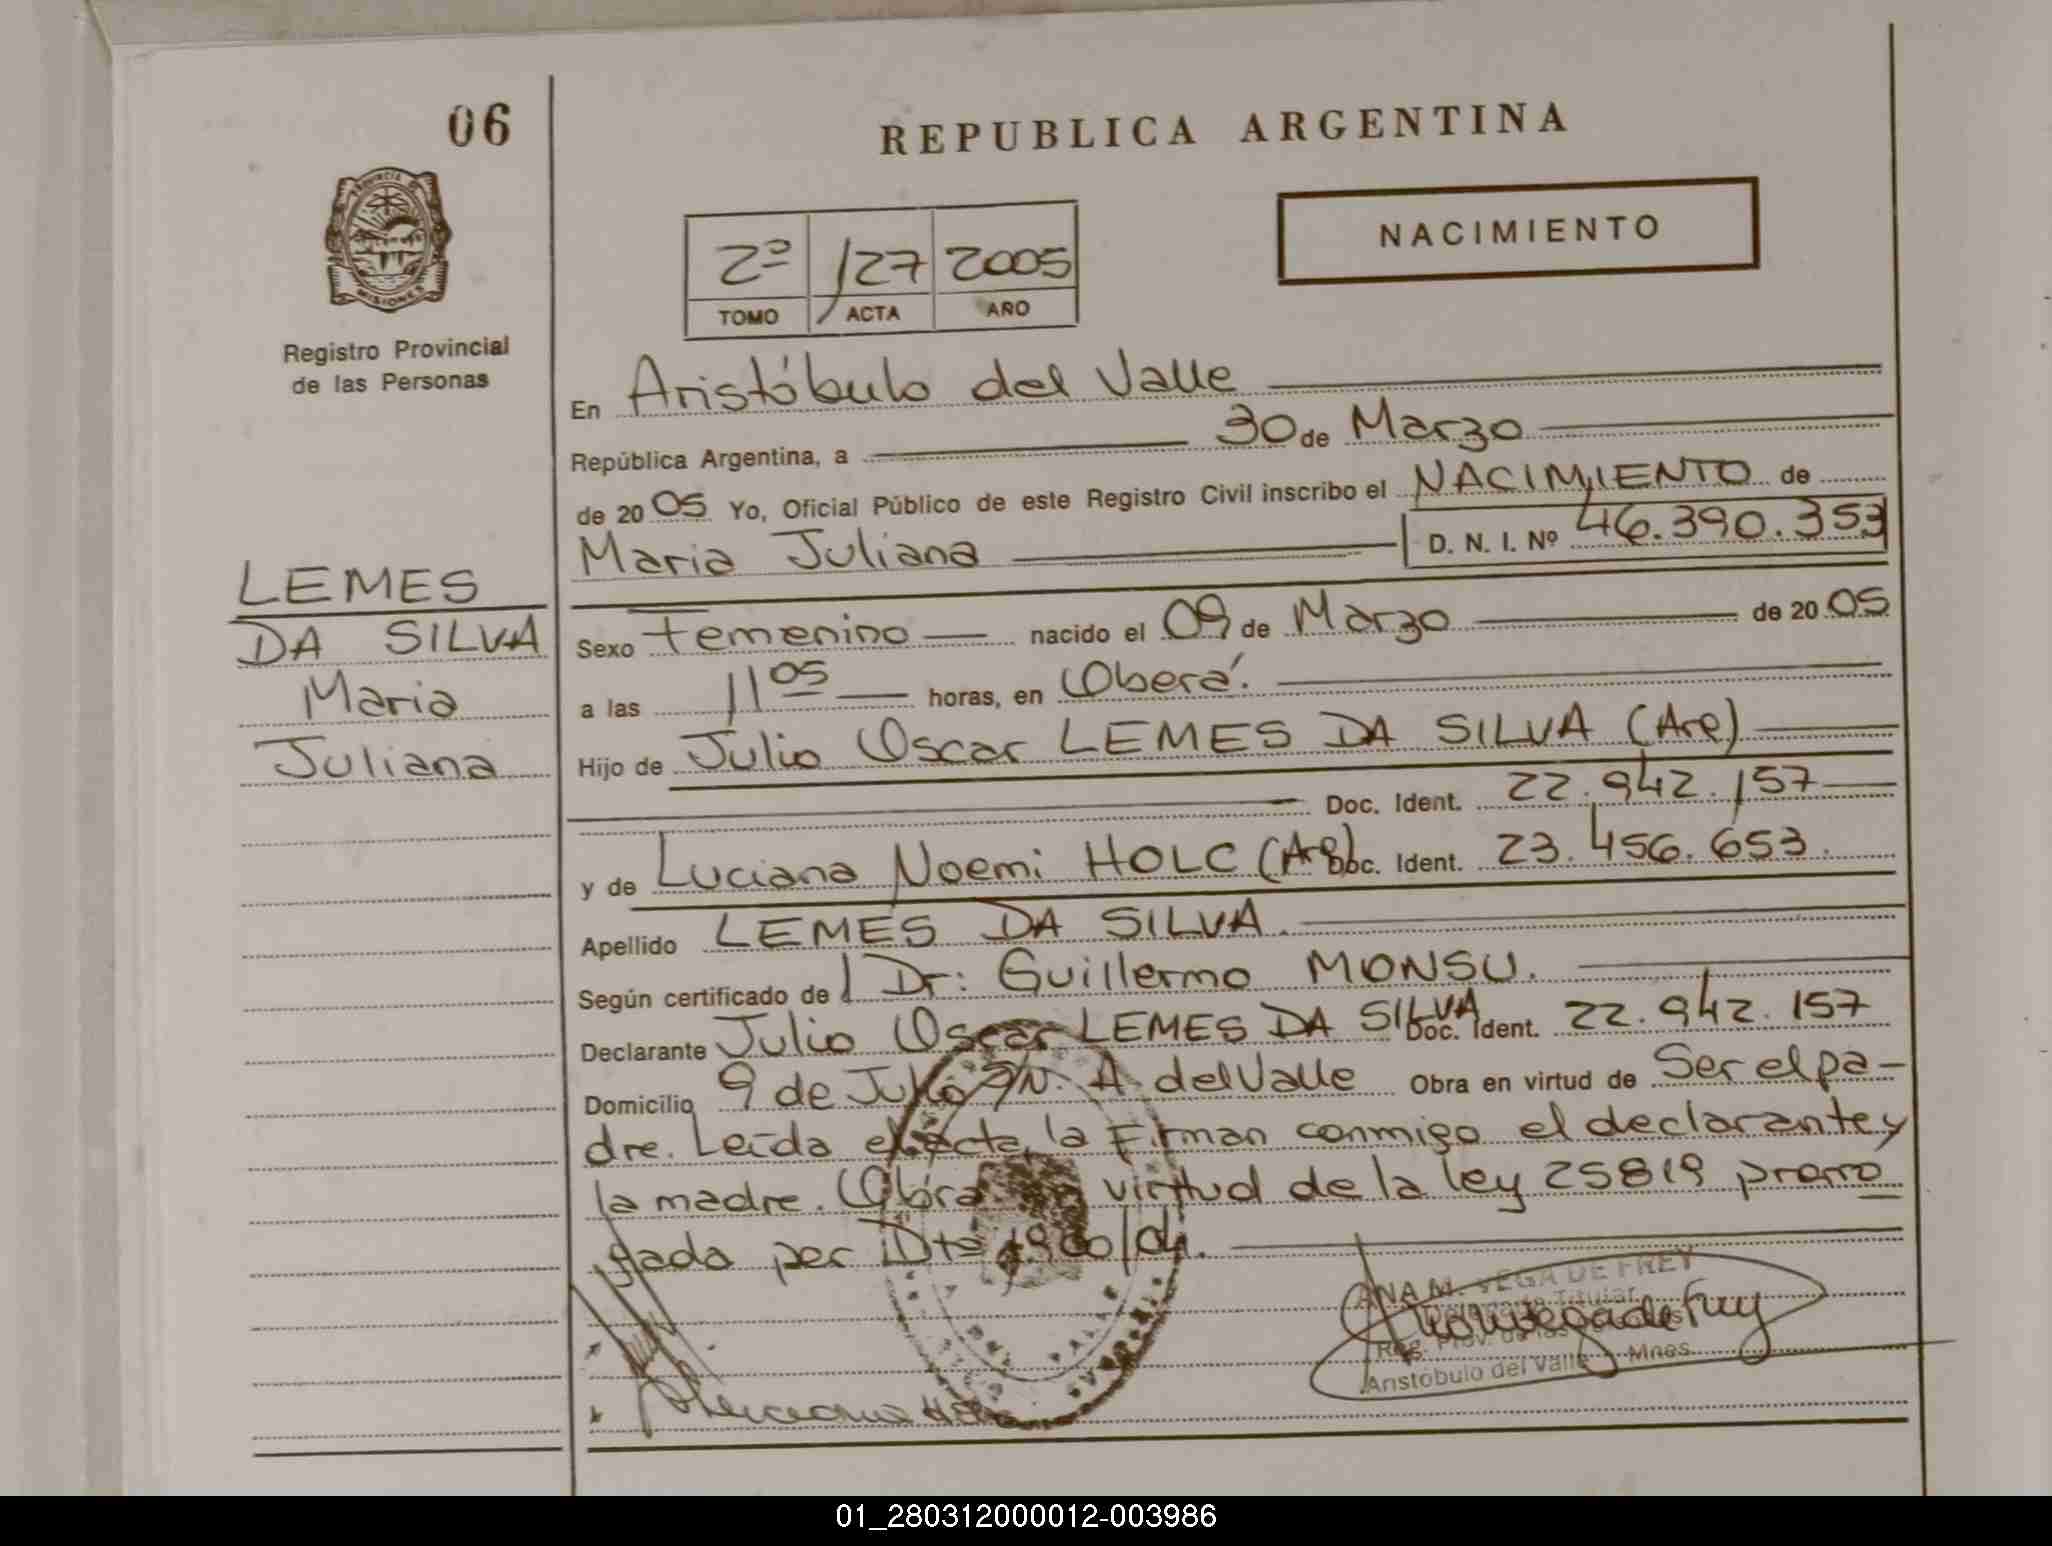 06
REPUBLICA ARGENTINA
NACIMIENTO
PROVINCIA DE
MISIONES
Registro Provincial
de las Personas
2º 127 2005
TOMO ACTA AÑO
En Aristóbulo del Valle
República Argentina, a 30 de Marzo
de 2005 Yo, Oficial Público de este Registro Civil inscribo el NACIMIENTO de
Maria Juliana D. N. I. Nº 46.390.353
LEMES
DA SILVA
Maria
Juliana
Sexo Femenino nacido el 09 de Marzo de 2005
a las 11 05 horas, en Oberá.
Hijo de Julio Oscar LEMES DA SILVA (Arg)
Doc. Ident. 22.942.157
y de Luciana Noemi HOLC (Arg) Doc. Ident. 23.456.653.
Apellido LEMES DA SILVA.
Según certificado de Dr: Guillermo MONSU.
Declarante Julio Oscar LEMES DA SILVA Doc. Ident. 22.942.157
Domicilio 9 de Julio S/N. A. del Valle Obra en virtud de Ser el pa-
dre. Leída el acta, la Firman conmigo el declarante y
la madre. Obra en virtud de la ley 25819 prorro
gada por Dto /04.
ANA M. VEGA DE FREY
Delegada Titular
Reg. Prov. de las
Aristóbulo del Valle - Mnes.
01_280312000012-003986